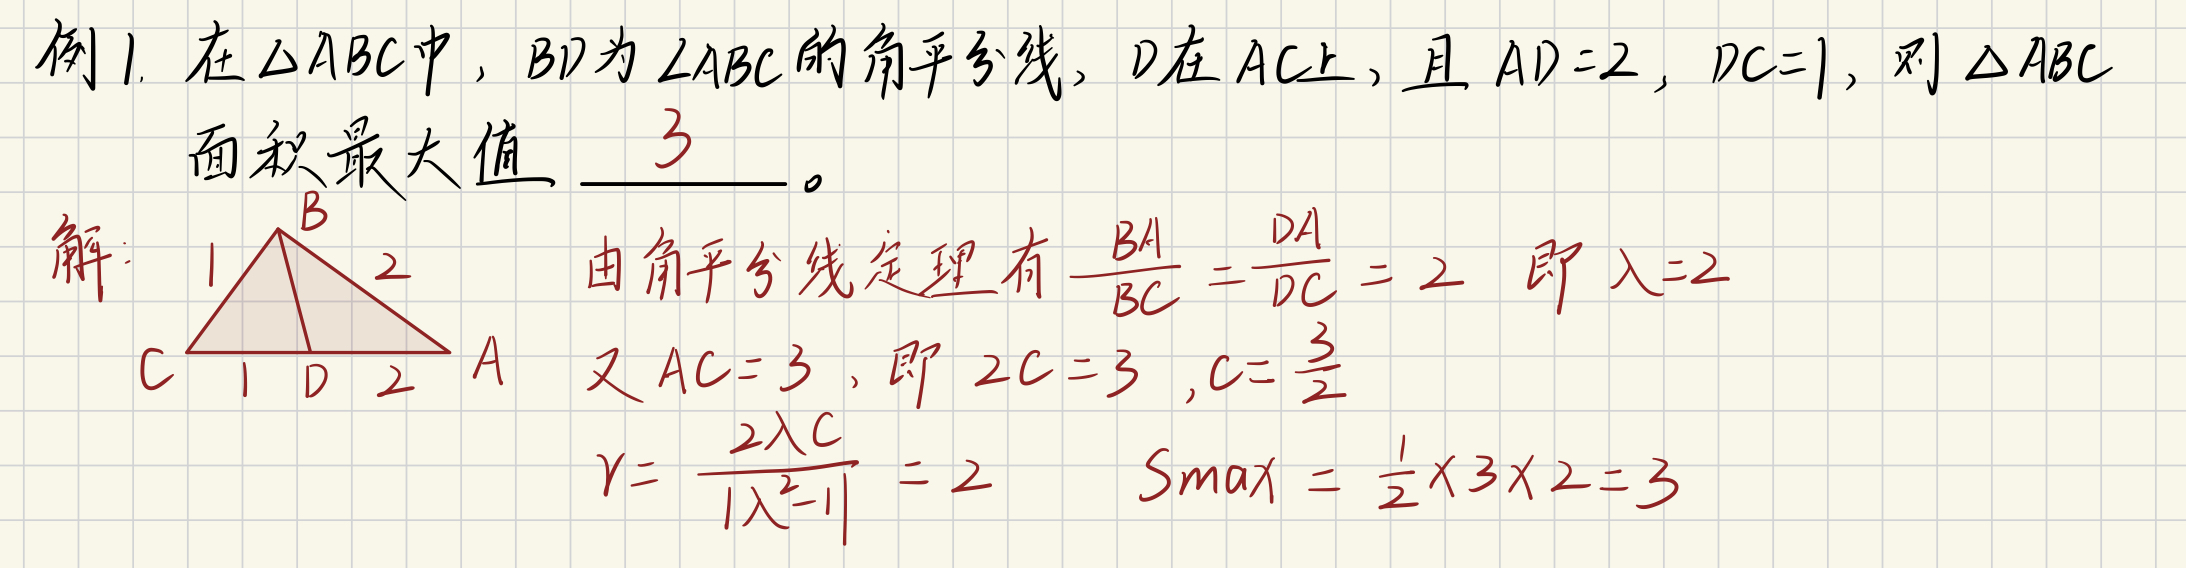 例1. 在△ABC中, BD为∠ABC的角平分线, D在AC上, 且 AD=2, DC=1, 则△ABC
面积最大值 3 。
解:
B
1 2
C 1 D 2 A
由角平分线定理有 BA/BC = DA/DC = 2 即 λ=2
又 AC=3, 即 2C=3, C=3/2
r= 2λC/|λ²-1| = 2 Smax = 1/2×3×2=3